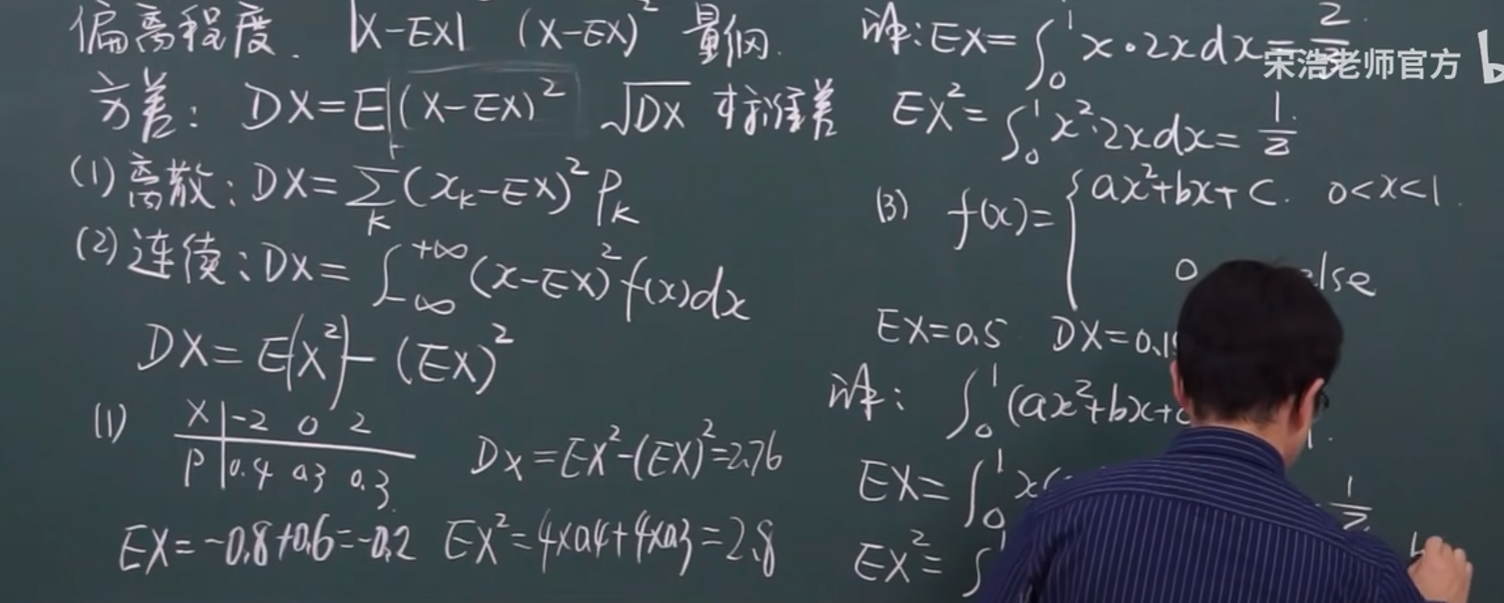 偏离程度. |X-EX| (X-EX)² 量纲.
方差: DX=E[(X-EX)² √DX 标准差
(1) 离散: DX=∑(xₖ-EX)² Pₖ
K
(2) 连续: DX=∫₋∞⁺∞(x-EX)²f(x)dx
DX=E(X²)-(EX)²
(1) X -2 0 2
P 0.4 0.3 0.3
DX=EX²-(EX)²=2.76
EX=-0.8+0.6=-0.2 EX²=4×0.4+4×0.3=2.8
解: EX=∫₀¹x·2xdx=2/3
宋浩老师官方 b
EX²=∫₀¹x²·2xdx=1/2
(3) f(x)={ax²+bx+c. 0<x<1.
0 else
EX=0.5 DX=0.15
解: ∫₀¹(ax²+bx+c
EX=∫₀¹x( 1/2
EX²=∫